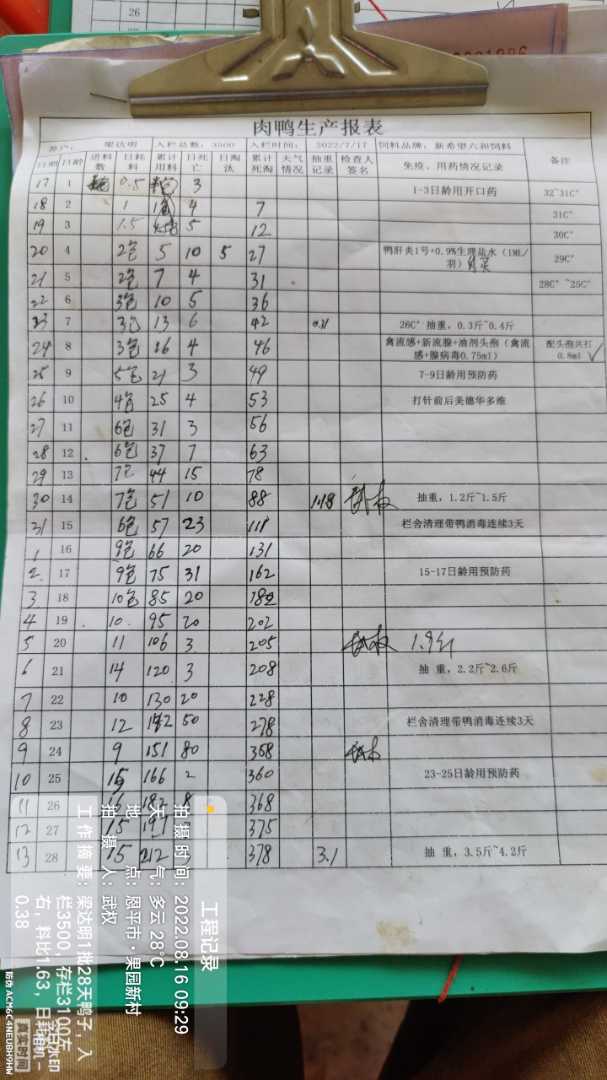 26
肉鸭生产报表
养户： 梁达明 入栏总数：3500 入栏时间： 2022/7/17 饲料品牌：新希望六和饲料
日期 日龄 进料数 日耗料 累计用料 日死亡 日淘汰 累计死淘 天气情况 抽重记录 检查人签名 免疫、用药情况记录 备注
17 1 0.5 3 1-3日龄用开口药 32~31C°
18 2 1 4 7 31C°
19 3 1.5 5 12 30C°
20 4 2包 5 10 5 27 鸭肝炎1号+0.9%生理盐水（1ML/羽） 29C°
21 5 2包 7 4 31 28C°~25C°
22 6 3包 10 5 36
23 7 3包 13 6 42 26C° 抽重，0.3斤~0.4斤
24 8 3包 16 4 46 禽流感+新流腺+油剂头孢（禽流感+腺病毒0.75ml） 配头孢共打0.8ml ✓
25 9 5包 21 3 49 7-9日龄用预防药
26 10 4包 25 4 53 打针前后美德华多维
27 11 6包 31 3 56
28 12 6包 37 7 63
29 13 7包 44 15 78
30 14 7包 51 10 88 1.18 武权 抽重，1.2斤~1.5斤
31 15 6包 57 23 111 栏舍清理带鸭消毒连续3天
1 16 9包 66 20 131
2 17 9包 75 31 162 15-17日龄用预防药
3 18 10包 85 20 182
4 19 10 95 20 202
5 20 11 106 3 205 武权 1.9斤
6 21 14 120 3 208 抽 重，2.2斤~2.6斤
7 22 10 130 20 228
8 23 12 142 50 278 栏舍清理带鸭消毒连续3天
9 24 9 151 80 358 武权
10 25 15 166 2 360 23-25日龄用预防药
11 26 16 182 8 368
12 27 15 197 375
13 28 15 212 378 3.1 抽 重，3.5斤~4.2斤
工程记录
拍摄时间：2022.08.16 09:29
天 气：多云 28°C
地 点：恩平市·果园新村
拍 摄 人：武权
工作摘要：梁达明1批28天鸭子，入
栏3500，存栏3100左
右，料比1.63，日
0.38
水印相机
真实时间
防伪 ACM6C4NEUBH9HW